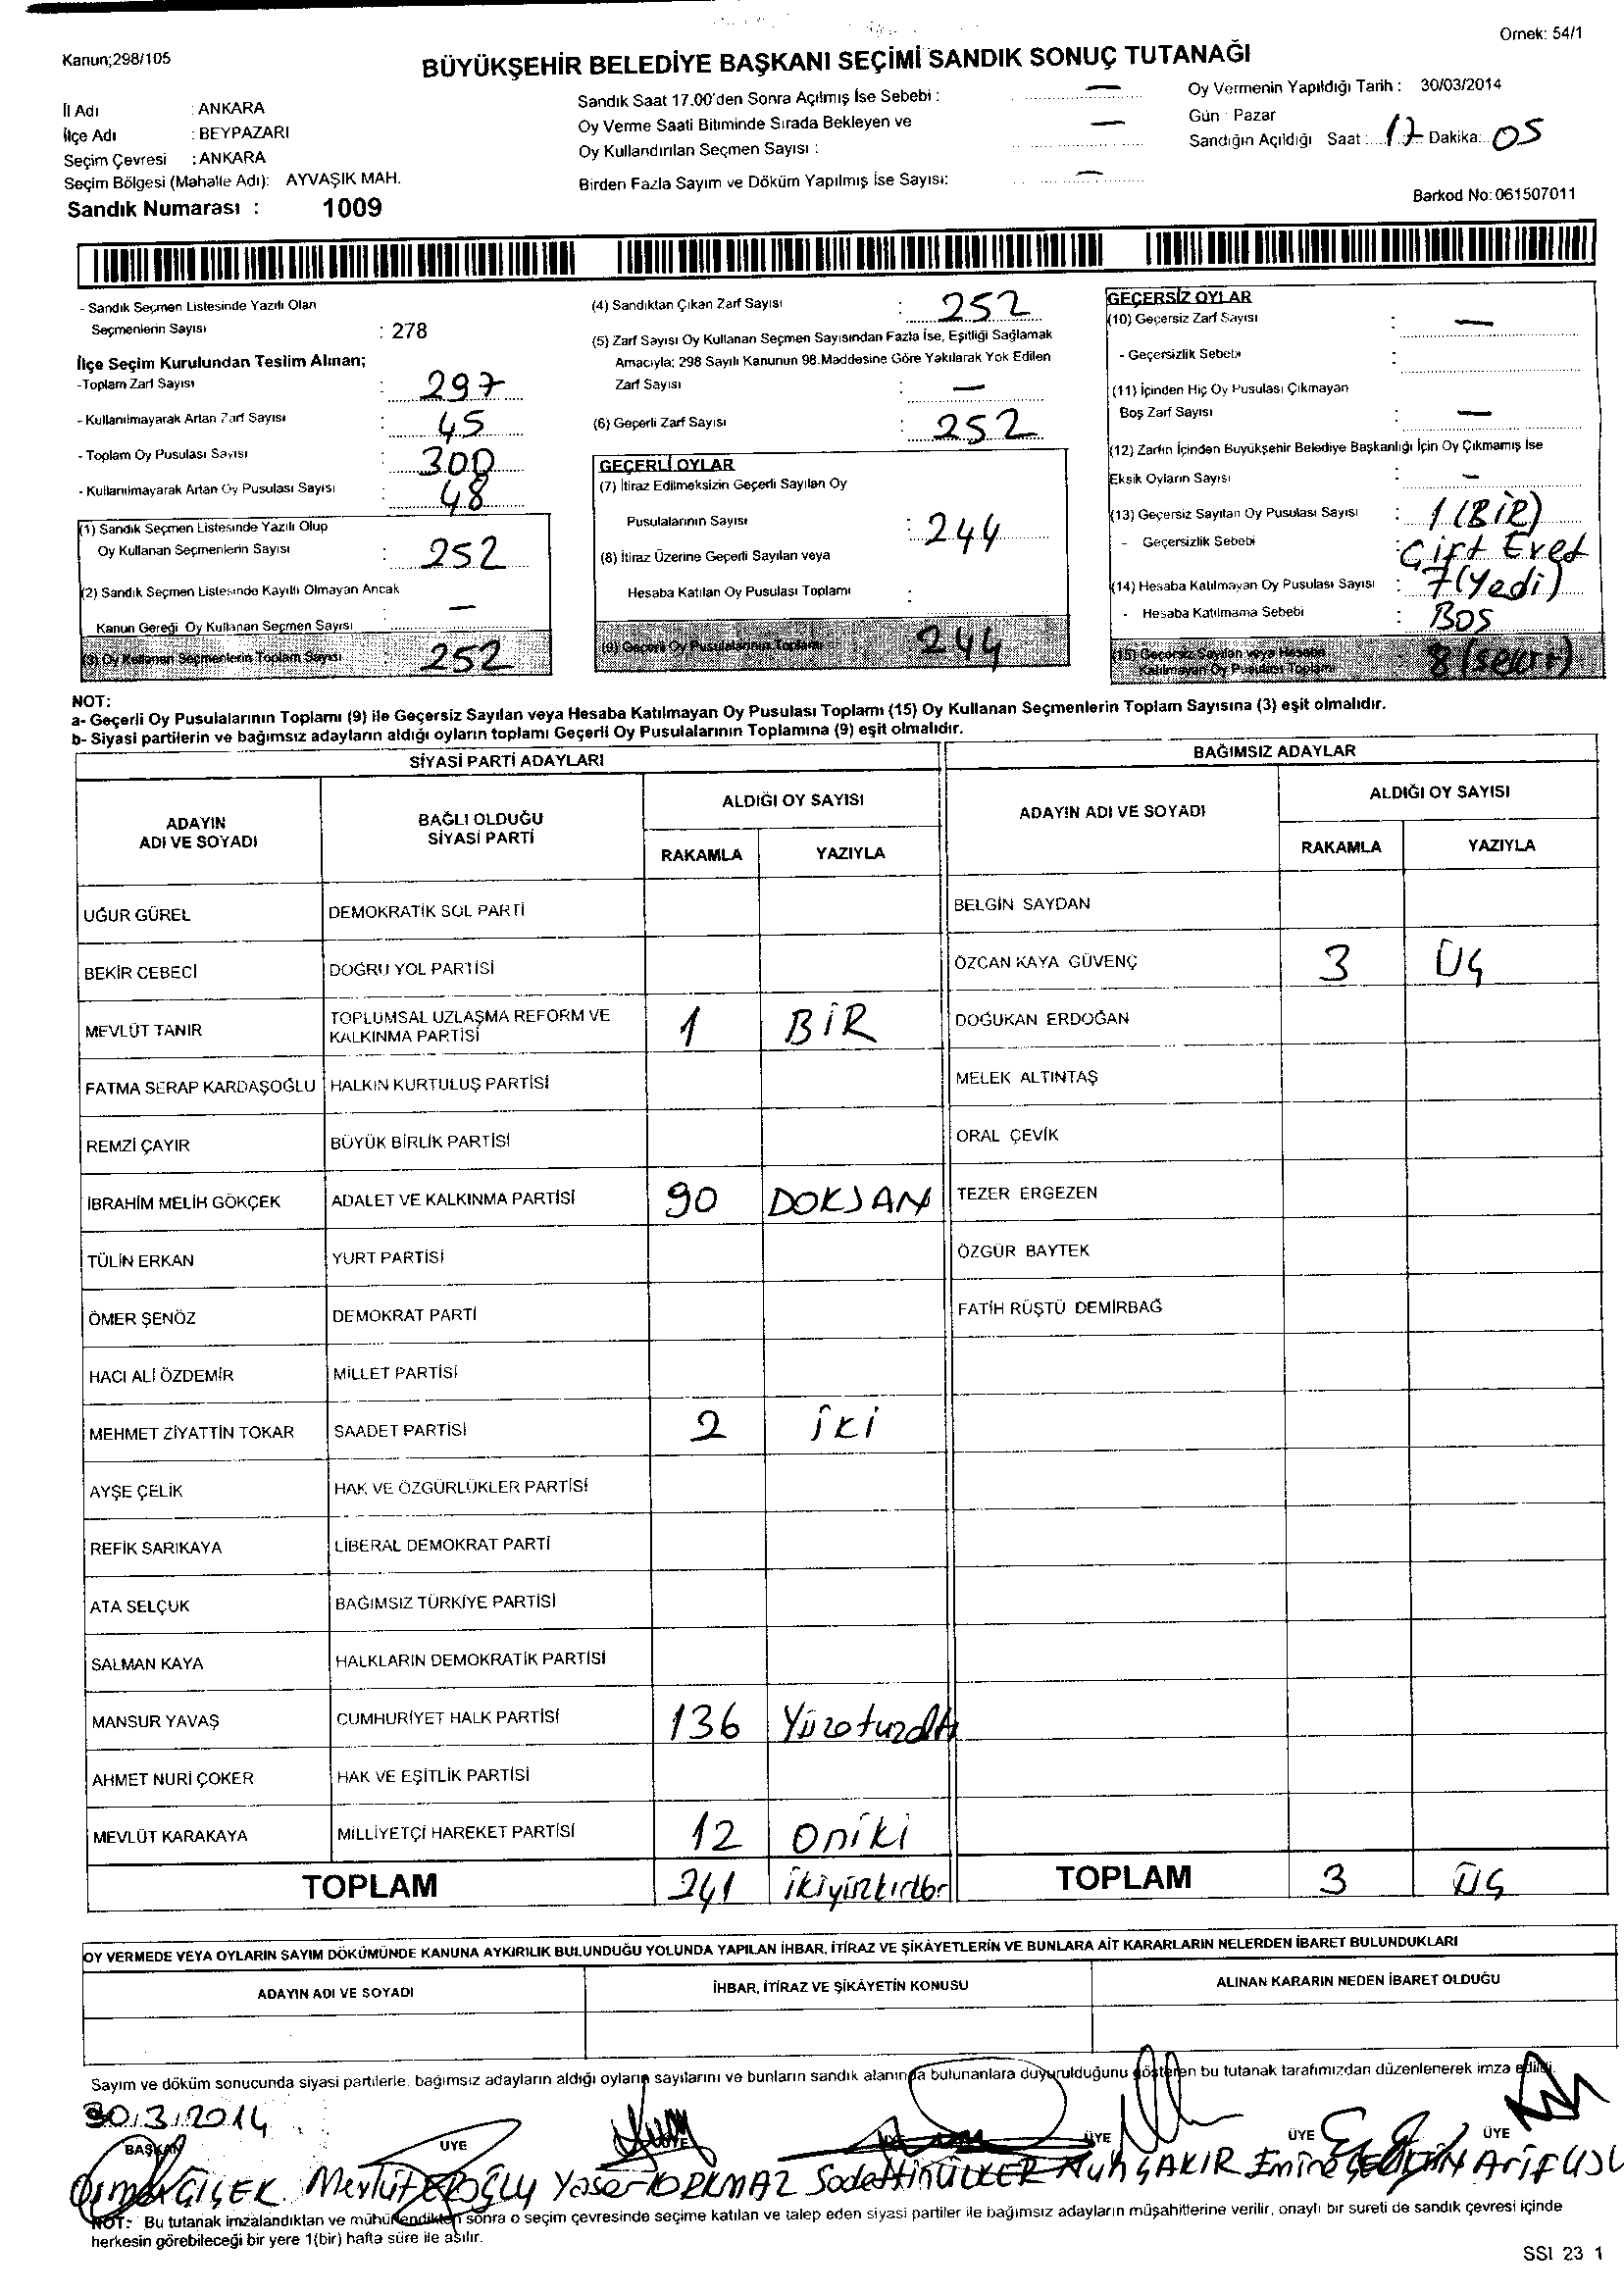 Örnek: 54/1
Kanun;298/105
BÜYÜKŞEHİR BELEDİYE BAŞKANI SEÇİMİ SANDIK SONUÇ TUTANAĞI
İl Adı : ANKARA
İlçe Adı : BEYPAZARI
Seçim Çevresi : ANKARA
Seçim Bölgesi (Mahalle Adı): AYVAŞIK MAH.
Sandık Numarası : 1009
Sandık Saat 17.00'den Sonra Açılmış İse Sebebi : —
Oy Verme Saati Bitiminde Sırada Bekleyen ve
Oy Kullandırılan Seçmen Sayısı : —
Birden Fazla Sayım ve Döküm Yapılmış İse Sayısı: —
Oy Vermenin Yapıldığı Tarih : 30/03/2014
Gün : Pazar
Sandığın Açıldığı Saat : 17 Dakika: 05
Barkod No: 061507011
- Sandık Seçmen Listesinde Yazılı Olan
Seçmenlerin Sayısı : 278
İlçe Seçim Kurulundan Teslim Alınan;
-Toplam Zarf Sayısı : 297
- Kullanılmayarak Artan Zarf Sayısı : 45
- Toplam Oy Pusulası Sayısı : 300
- Kullanılmayarak Artan Oy Pusulası Sayısı : 48
(1) Sandık Seçmen Listesinde Yazılı Olup
Oy Kullanan Seçmenlerin Sayısı : 252
(2) Sandık Seçmen Listesinde Kayıtlı Olmayan Ancak
Kanun Gereği Oy Kullanan Seçmen Sayısı : —
(3) Oy Kullanan Seçmenlerin Toplam Sayısı : 252
(4) Sandıktan Çıkan Zarf Sayısı : 252
(5) Zarf Sayısı Oy Kullanan Seçmen Sayısından Fazla İse, Eşitliği Sağlamak
Amacıyla; 298 Sayılı Kanunun 98.Maddesine Göre Yakılarak Yok Edilen
Zarf Sayısı : —
(6) Geçerli Zarf Sayısı : 252
GEÇERLİ OYLAR
(7) İtiraz Edilmeksizin Geçerli Sayılan Oy
Pusulalarının Sayısı : 244
(8) İtiraz Üzerine Geçerli Sayılan veya
Hesaba Katılan Oy Pusulası Toplamı :
(9) Geçerli Oy Pusulalarının Toplamı 244
GEÇERSİZ OYLAR
(10) Geçersiz Zarf Sayısı : —
- Geçersizlik Sebebi :
(11) İçinden Hiç Oy Pusulası Çıkmayan
Boş Zarf Sayısı : —
(12) Zarfın İçinden Büyükşehir Belediye Başkanlığı İçin Oy Çıkmamış İse
Eksik Oyların Sayısı : —
(13) Geçersiz Sayılan Oy Pusulası Sayısı : 1 (BİR)
- Geçersizlik Sebebi : Çift Evet
(14) Hesaba Katılmayan Oy Pusulası Sayısı : 7 (Yedi)
- Hesaba Katılmama Sebebi : BOŞ
(15) Geçersiz Sayılan veya Hesaba
Katılmayan Oy Pusulası Toplamı : 8
NOT:
a- Geçerli Oy Pusulalarının Toplamı (9) ile Geçersiz Sayılan veya Hesaba Katılmayan Oy Pusulası Toplamı (15) Oy Kullanan Seçmenlerin Toplam Sayısına (3) eşit olmalıdır.
b- Siyasi partilerin ve bağımsız adayların aldığı oyların toplamı Geçerli Oy Pusulalarının Toplamına (9) eşit olmalıdır.
SİYASİ PARTİ ADAYLARI
ADAYIN ADI VE SOYADI BAĞLI OLDUĞU SİYASİ PARTİ ALDIĞI OY SAYISI
RAKAMLA YAZIYLA
UĞUR GÜREL DEMOKRATİK SOL PARTİ
BEKİR CEBECİ DOĞRU YOL PARTİSİ
MEVLÜT TANIR TOPLUMSAL UZLAŞMA REFORM VE KALKINMA PARTİSİ 1 BİR
FATMA SERAP KARDAŞOĞLU HALKIN KURTULUŞ PARTİSİ
REMZİ ÇAYIR BÜYÜK BİRLİK PARTİSİ
İBRAHİM MELİH GÖKÇEK ADALET VE KALKINMA PARTİSİ 90 DOKSAN
TÜLİN ERKAN YURT PARTİSİ
ÖMER ŞENÖZ DEMOKRAT PARTİ
HACI ALİ ÖZDEMİR MİLLET PARTİSİ
MEHMET ZİYATTİN TOKAR SAADET PARTİSİ 2 İKİ
AYŞE ÇELİK HAK VE ÖZGÜRLÜKLER PARTİSİ
REFİK SARIKAYA LİBERAL DEMOKRAT PARTİ
ATA SELÇUK BAĞIMSIZ TÜRKİYE PARTİSİ
SALMAN KAYA HALKLARIN DEMOKRATİK PARTİSİ
MANSUR YAVAŞ CUMHURİYET HALK PARTİSİ 136 Yüzotuzaltı
AHMET NURİ ÇOKER HAK VE EŞİTLİK PARTİSİ
MEVLÜT KARAKAYA MİLLİYETÇİ HAREKET PARTİSİ 12 Oniki
TOPLAM 241 ikiyüzkırkbir
BAĞIMSIZ ADAYLAR
ADAYIN ADI VE SOYADI ALDIĞI OY SAYISI
RAKAMLA YAZIYLA
BELGİN SAYDAN
ÖZCAN KAYA GÜVENÇ 3 ÜÇ
DOĞUKAN ERDOĞAN
MELEK ALTINTAŞ
ORAL ÇEVİK
TEZER ERGEZEN
ÖZGÜR BAYTEK
FATİH RÜŞTÜ DEMİRBAĞ
TOPLAM 3 ÜÇ
OY VERMEDE VEYA OYLARIN SAYIM DÖKÜMÜNDE KANUNA AYKIRILIK BULUNDUĞU YOLUNDA YAPILAN İHBAR, İTİRAZ VE ŞİKÂYETLERİN VE BUNLARA AİT KARARLARIN NELERDEN İBARET BULUNDUKLARI
ADAYIN ADI VE SOYADI İHBAR, İTİRAZ VE ŞİKÂYETİN KONUSU ALINAN KARARIN NEDEN İBARET OLDUĞU
Sayım ve döküm sonucunda siyasi partilerle, bağımsız adayların aldığı oyların sayılarını ve bunların sandık alanında bulunanlara duyurulduğunu gösteren bu tutanak tarafımızdan düzenlenerek imza edildi.
30.3.2014
BAŞKAN ÜYE ÜYE ÜYE ÜYE ÜYE
ÇİÇEK Mevlüt EROĞLU Yaşar KORKMAZ Sadettin ÜLKER Nuh ÇAKIR Emine Arif
NOT: Bu tutanak imzalandıktan ve mühürlendikten sonra o seçim çevresinde seçime katılan ve talep eden siyasi partiler ile bağımsız adayların müşahitlerine verilir, onaylı bir sureti de sandık çevresi içinde
herkesin görebileceği bir yere 1(bir) hafta süre ile asılır.
SSI 23 1